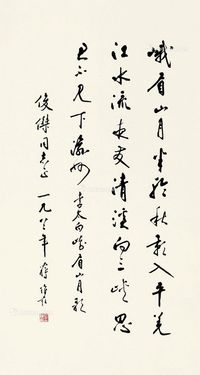 峨眉山月半輪秋影入平羌
江水流夜發清溪向三峽思
君不見下渝州 李太白峨眉山月歌
俊傑同志正 一九八年